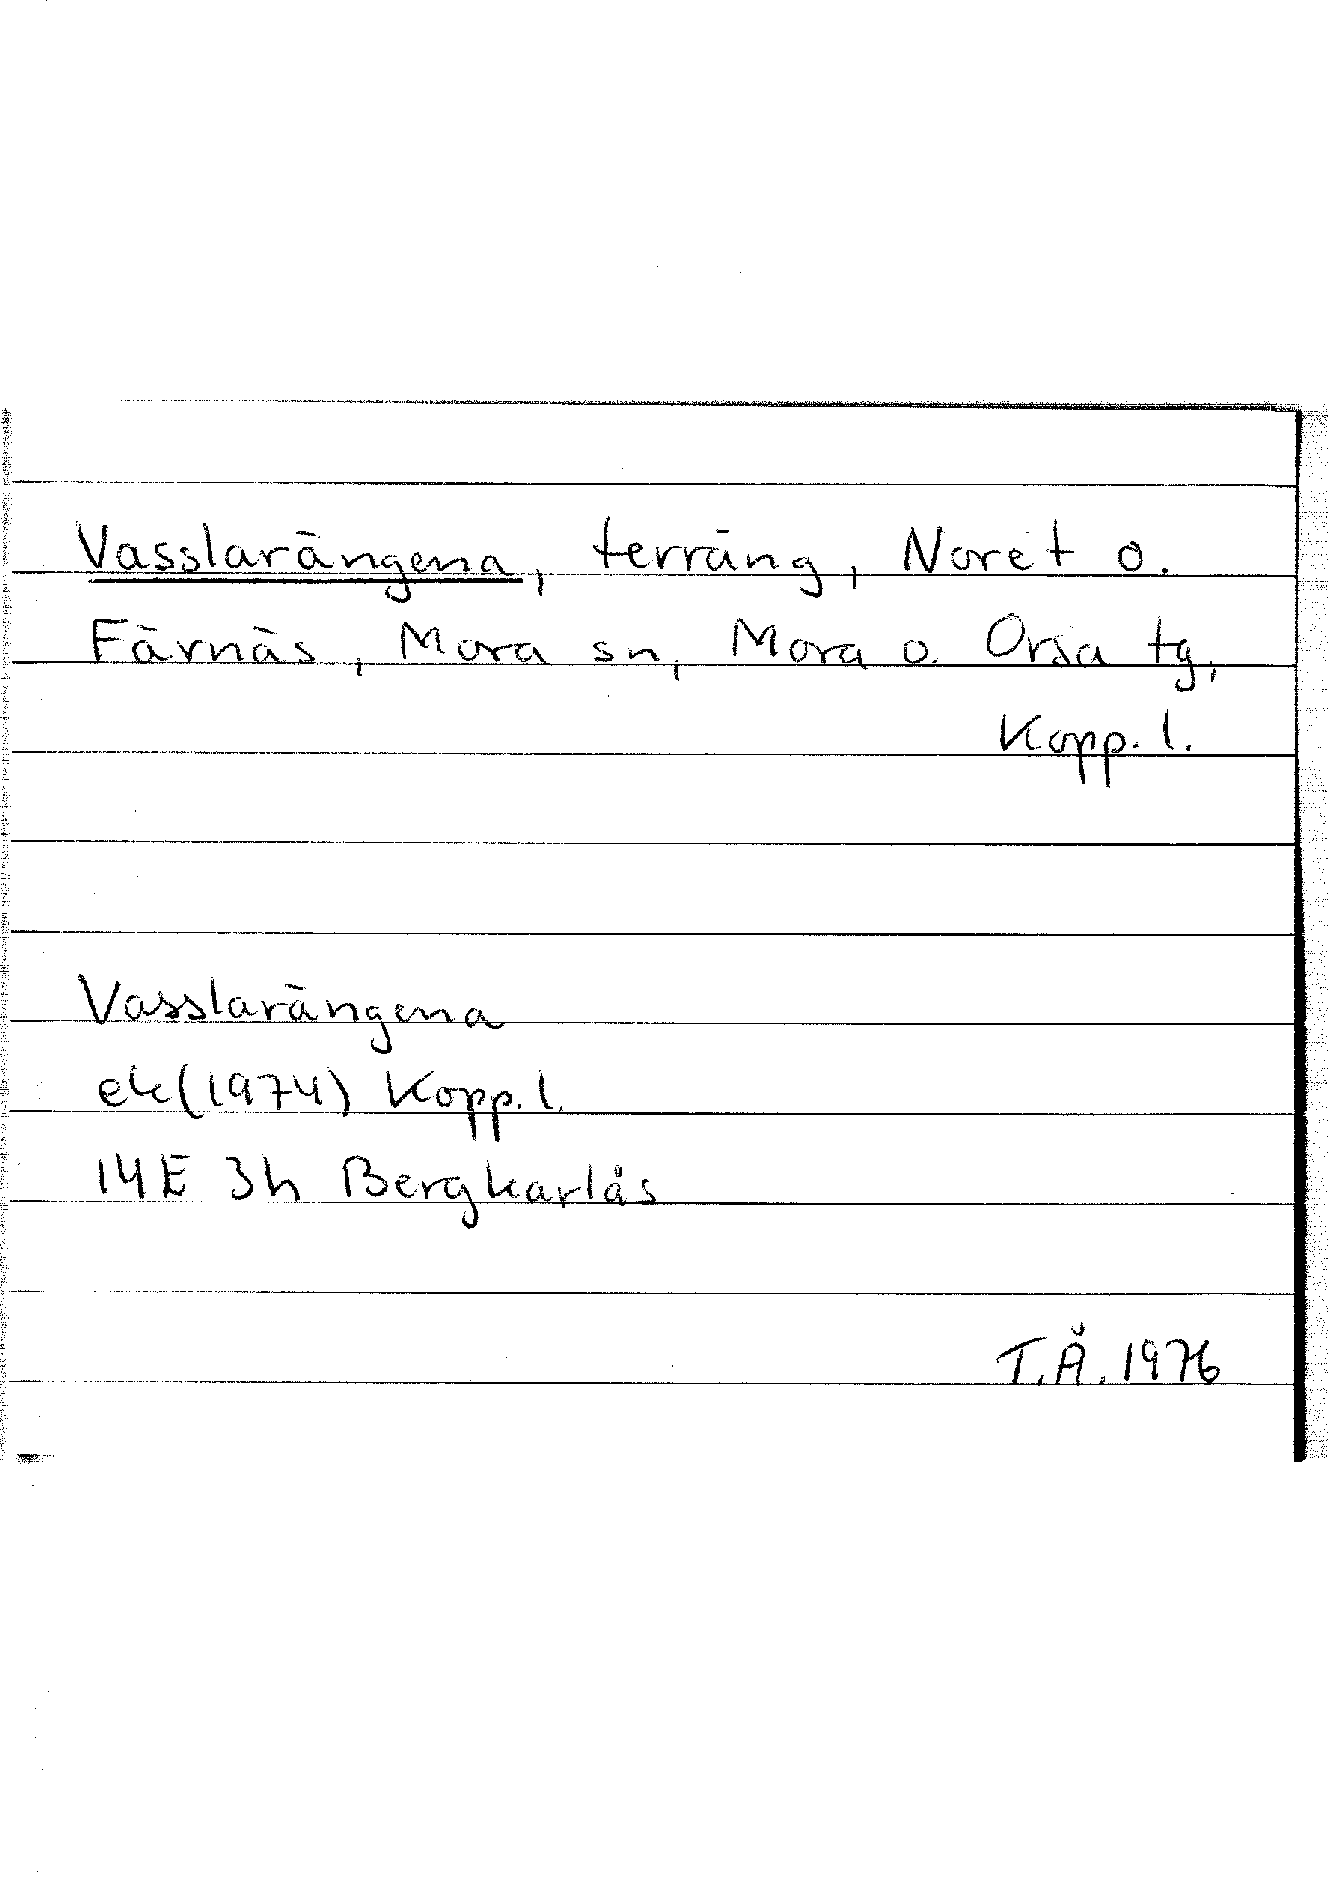 Vasslarängena, terräng, Noret o.
Färnäs, Mora sn, Mora o. Orsa tg,
Kopp. l.
Vasslarängena
ek(1974) Kopp. l.
14E 3h Bergkarlås
T.Å. 1976